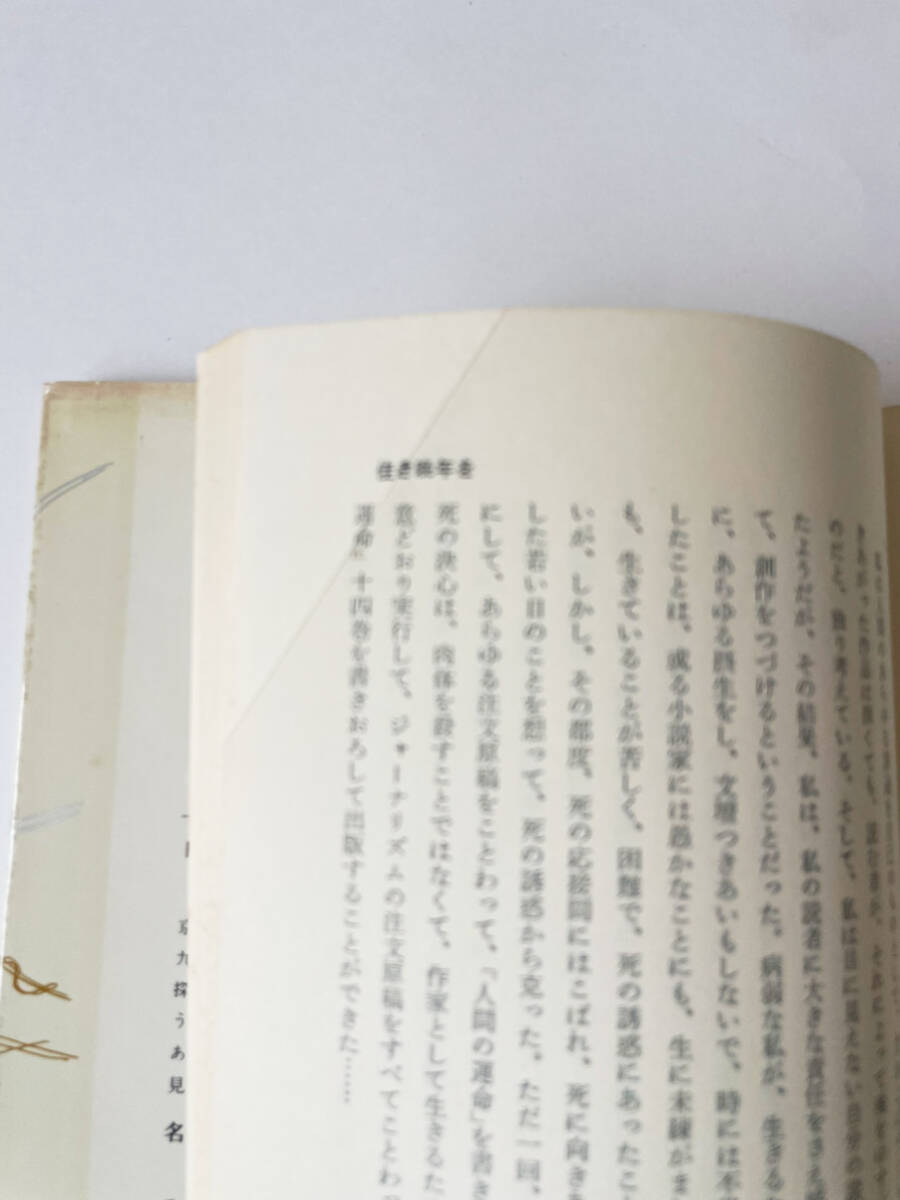 佳き晩年を
きあがった作品は拙くても、
のだと、独り考えている。そして、私は目に見えない自分の
たようだが、その結果、私は、私の読者に大きな責任をさえ
て、創作をつづけるということだった。病弱な私が、生きる
に、あらゆる摂生をし、文壇つきあいもしないで、時には不
したことは、或る小説家には愚かなことにも、生に未練がま
も、生きていることが苦しく、困難で、死の誘惑にあったこ
いが、しかし、その都度、死の応接間にはこばれ、死に向き
した若い日のことを想って、死の誘惑から克った。ただ一回、
にして、あらゆる注文原稿をことわって、「人間の運命」を書き
死の決心は、肉体を殺すことではなくて、作家として生きるた
意どおり実行して、ジャーナリズムの注文原稿をすべてことわ
運命」十四巻を書きおろして出版することができた……
京九探うぁ見
名